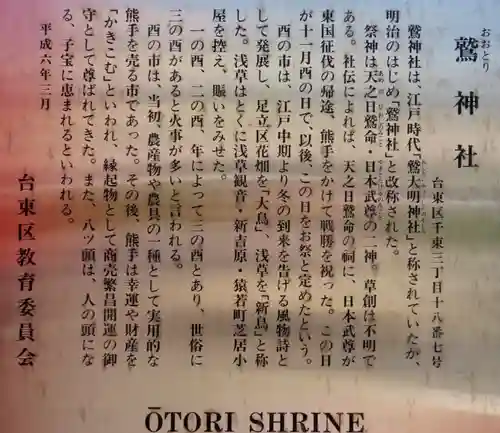 おおとり
鷲神社
台東区千東三丁目十八番七号
鷲神社は、江戸時代「鷲大明神社」と称されていたが、
明治のはじめ「鷲神社」と改称された。
祭神は天之日鷲命・日本武尊の二神。草創は不明で
ある。社伝によれば、天之日鷲命の祠に、日本武尊が
東国征伐の帰途、熊手をかけて戦勝を祝った。この日
が十一月酉の日で、以後、この日をお祭と定めたという。
酉の市は、江戸中期より冬の到来を告げる風物詩と
して発展し、足立区花畑を「大鳥」、浅草を「新鳥」と称
した。浅草はとくに浅草観音・新吉原・猿若町芝居小
屋を控え、賑いをみせた。
一の酉、二の酉、年によって三の酉とあり、世俗に
三の酉があると火事が多いと言われる。
酉の市は、当初、農産物や農具の一種として実用的な
熊手を売る市であった。その後、熊手は幸運や財産を
「かきこむ」といわれ、縁起物として商売繁昌開運の御
守として尊ばれてきた。また、八ツ頭は、人の頭にな
る、子宝に恵まれるといわれる。
平成六年三月
台東区教育委員会
ŌTORI SHRINE